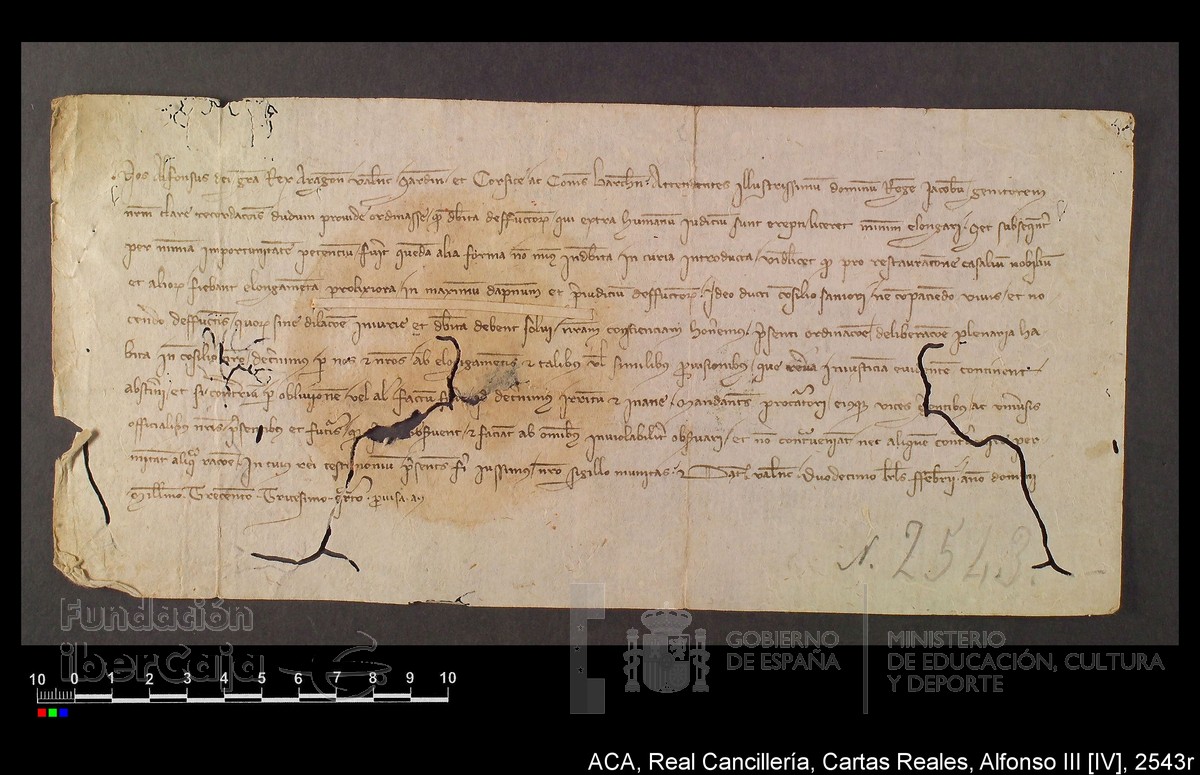 Nos Alfonsus dei gra Rex Aragon Valenc Sardin et Corsice ac Comes Barchn. Attendentes Illustrissimum dominum Regem Jacobum genitorem
nrm clare recordacois dudum provide ordinasse q debita deffunctor qui extra humanum iudicium sunt erepti liceret minime elongari. Set subsequntr
per nimia importunitate petenciu fuit queda alia forma no minus indebita in curia introducta videlicet q pro restauracione casalium nobilium
et alior fiebant elongamenta prolixiora in maximu dapnum et preiudicium deffunctor. Ideo ducti consilio saniori ne copaciendo vivis et no
deffunctis quor sine dilacoe iniurie et debita debent solvi nram conscienciam honeremus presenti ordinacoe deliberacoe plenaria ha
bita in consilio nro decernimus p nos et nros ab elongamentis et talibus vel similibus provisionibus que iniusticia evidente continent
abstineri et si contrariu p oblivione vel al factu decernimus irritu et inane. Mandantes procuratori eiusq vices gerentibus ac universis
officialibus nris presentibus et futuris q observent et faciant ab omnibus inviolabiliter observari et no contraveniat nec aliquem contravenire per
mitant aliqua racoe. In cuius rei testimonium presentes fieri iussimus nro sigillo munitas. Dat Valenc duodecimo kls Febrii anno domini
Millimo Trecento Tricesimo quarto provisa
N. 2543.
Fundación
iberCaja
GOBIERNO
DE ESPAÑA
MINISTERIO
DE EDUCACIÓN, CULTURA
Y DEPORTE
10 0 1 2 3 4 5 6 7 8 9 10
ACA, Real Cancillería, Cartas Reales, Alfonso III [IV], 2543r